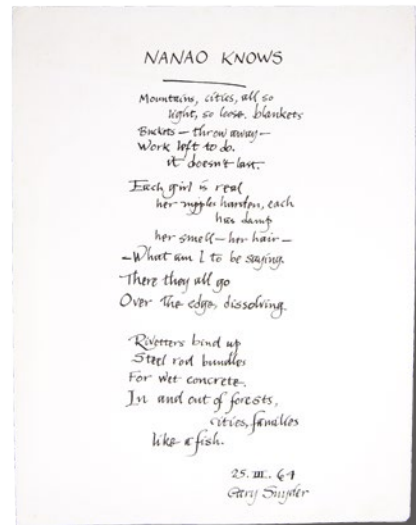 NANAO KNOWS
Mountains, cities, all so
light, so loose. blankets
Buckets — throw away —
Work left to do.
it doesn't last.
Each girl is real
her nipples harden, each
has damp
her smell — her hair —
—What am I to be saying.
There they all go
Over the edge, dissolving.
Rivetters bind up
Steel rod bundles
For wet concrete.
In and out of forests,
cities, families
like a fish.
25. III. 64
Gary Snyder